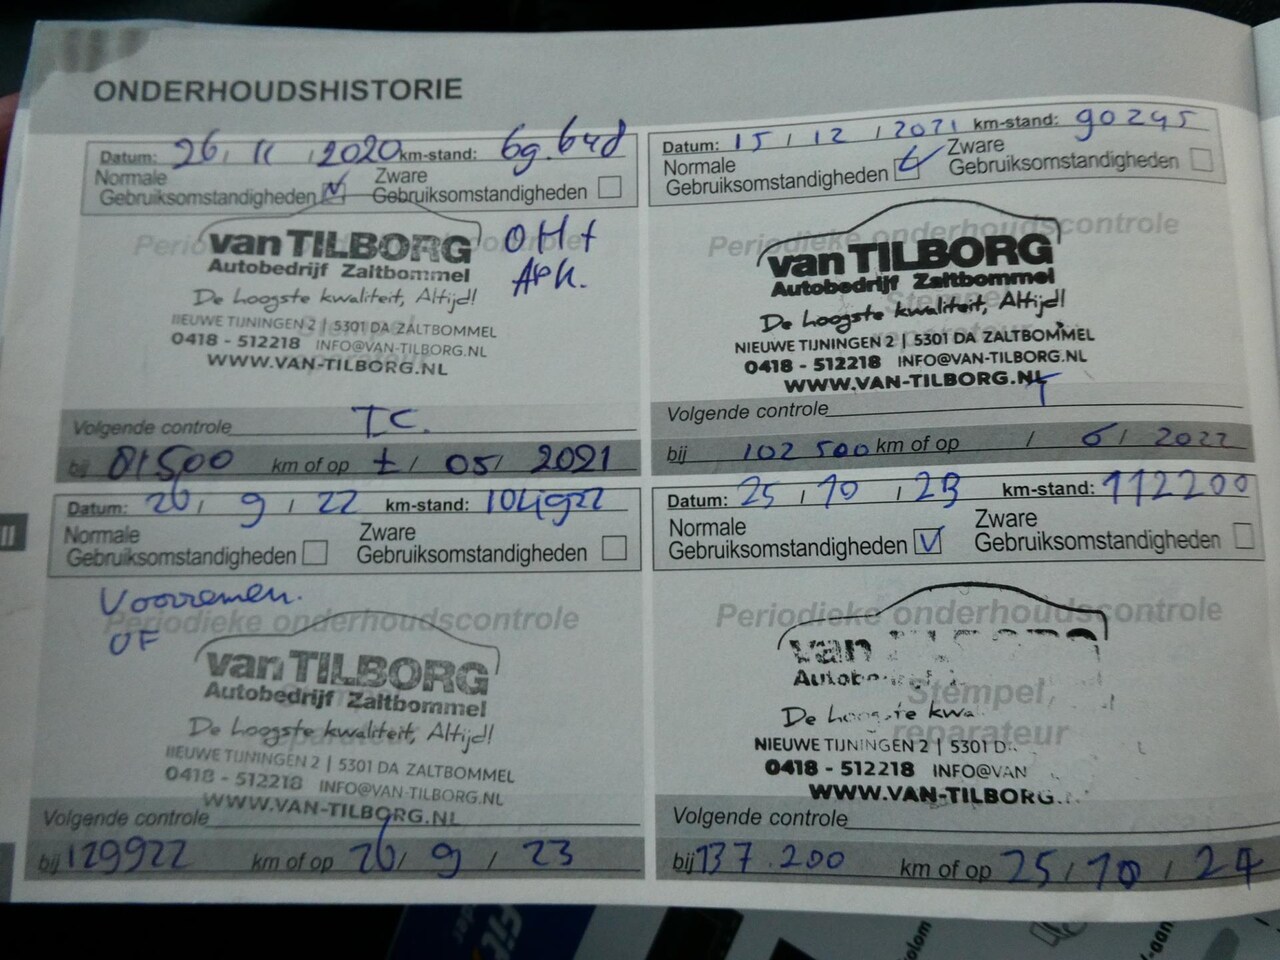 ONDERHOUDSHISTORIE
Datum: 26 / 11 / 2020 km-stand: 69.648
Normale Gebruiksomstandigheden
Zware Gebruiksomstandigheden
Periodieke onderhoudscontrole
OH +
APK.
van TILBORG
Autobedrijf Zaltbommel
De hoogste kwaliteit, Altijd!
NIEUWE TIJNINGEN 2 | 5301 DA ZALTBOMMEL
0418 - 512218 INFO@VAN-TILBORG.NL
WWW.VAN-TILBORG.NL
Volgende controle TC.
bij 81500 km of op ± / 05 / 2021
Datum: 15 / 12 / 2021 km-stand: 90245
Normale Gebruiksomstandigheden
Zware Gebruiksomstandigheden
Periodieke onderhoudscontrole
van TILBORG
Autobedrijf Zaltbommel
De hoogste kwaliteit, Altijd!
NIEUWE TIJNINGEN 2 | 5301 DA ZALTBOMMEL
0418 - 512218 INFO@VAN-TILBORG.NL
WWW.VAN-TILBORG.NL
Volgende controle T
bij 102 500 km of op / 6 / 2022
Datum: 26 / 9 / 22 km-stand: 104922
Normale Gebruiksomstandigheden
Zware Gebruiksomstandigheden
Voorremen.
OF
Periodieke onderhoudscontrole
van TILBORG
Autobedrijf Zaltbommel
De hoogste kwaliteit, Altijd!
NIEUWE TIJNINGEN 2 | 5301 DA ZALTBOMMEL
0418 - 512218 INFO@VAN-TILBORG.NL
WWW.VAN-TILBORG.NL
Volgende controle
bij 129922 km of op 26 / 9 / 23
Datum: 25 / 10 / 23 km-stand: 112200
Normale Gebruiksomstandigheden
Zware Gebruiksomstandigheden
Periodieke onderhoudscontrole
Stempel
reparateur
van
De kwa
NIEUWE TIJNINGEN 2 | 5301 D
0418 - 512218 INFO@VAN
WWW.VAN-TILBORG.
Volgende controle
bij 137.200 km of op 25 / 10 / 24